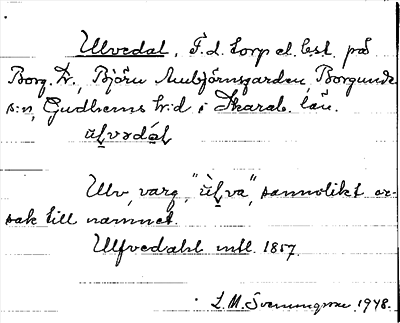 Ulvedal, F.d. torp el. lgst. på
Borg. Tr., Björn Ambjörnsgarden, Borgunda
s:n, Gudhems h:d i Skarab. län.
ulvədal
Ulv, varg, "ùlva", sannolikt or-
sak till namnet.
Ulfvedahl mtl. 1857.
L.M. Svenungsson 1948.